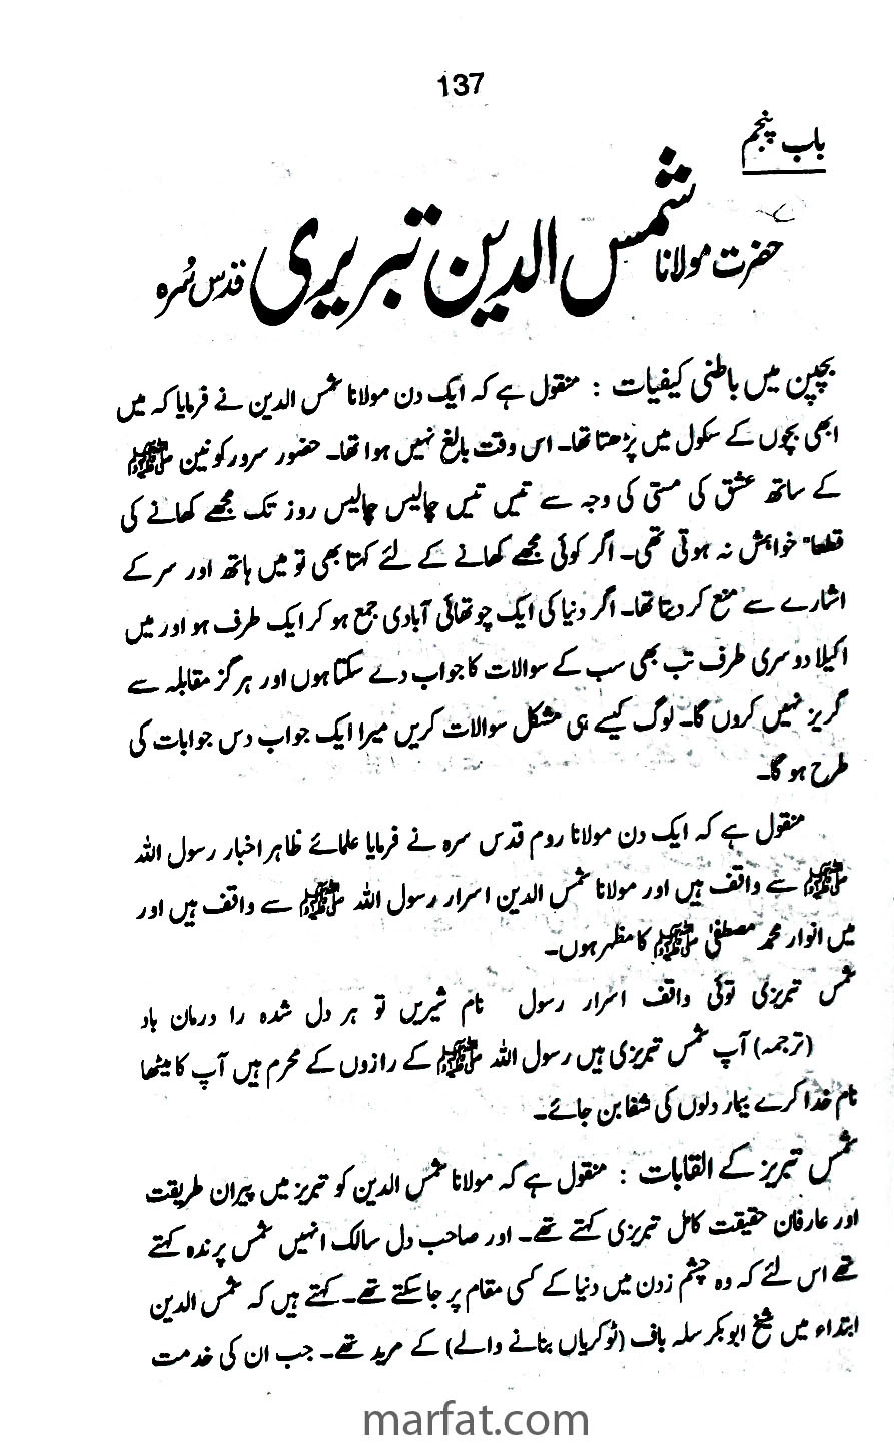 137
باب پنجم
حضرت مولانا شمس الدین تبریری قدس سُرہ
بچپن میں باطنی کیفیات : منقول ہے کہ ایک دن مولانا شمس الدین نے فرمایا کہ میں
ابھی بچوں کے سکول میں پڑھتا تھا۔ اس وقت بالغ نہیں ہوا تھا۔ حضور سرور کونین ﷺ
کے ساتھ عشق کی مستی کی وجہ سے تیس تیس چالیس چالیس روز تک مجھے کھانے کی
قطعا" خواہش نہ ہوتی تھی۔ اگر کوئی مجھے کھانے کے لئے کہتا بھی تو میں ہاتھ اور سر کے
اشارے سے منع کر دیتا تھا۔ اگر دنیا کی ایک چوتھائی آبادی جمع ہو کر ایک طرف ہو اور میں
اکیلا دوسری طرف تب بھی سب کے سوالات کا جواب دے سکتا ہوں اور ہرگز مقابلہ سے
گریز نہیں کروں گا۔ لوگ کیسے ہی مشکل سوالات کریں میرا ایک جواب دس جوابات کی
طرح ہو گا۔
منقول ہے کہ ایک دن مولانا روم قدس سرہ نے فرمایا علمائے ظاہر اخبار رسول اللہ
ﷺ سے واقف ہیں اور مولانا شمس الدین اسرار رسول اللہ ﷺ سے واقف ہیں اور
میں انوار محمد مصطفیٰ ﷺ کا مظہر ہوں۔
شمس تبریزی توئی واقف اسرار رسول نام شیریں تو ہر دل شدہ را درمان باد
(ترجمہ) آپ شمس تبریزی ہیں رسول اللہ ﷺ کے رازوں کے محرم ہیں آپ کا میٹھا
نام خدا کرے بیمار دلوں کی شفا بن جائے۔
شمس تبریز کے القابات : منقول ہے کہ مولانا شمس الدین کو تبریز میں پیران طریقت
اور عارفان حقیقت کامل تبریزی کہتے تھے۔ اور صاحب دل سالک انہیں شمس پرندہ کہتے
تھے اس لئے کہ وہ چشم زدن میں دنیا کے کسی مقام پر جا سکتے تھے۔ کہتے ہیں کہ شمس الدین
ابتداء میں شیخ ابوبکر سلہ باف (ٹوکریاں بنانے والے) کے مرید تھے۔ جب ان کی خدمت
marfat.com